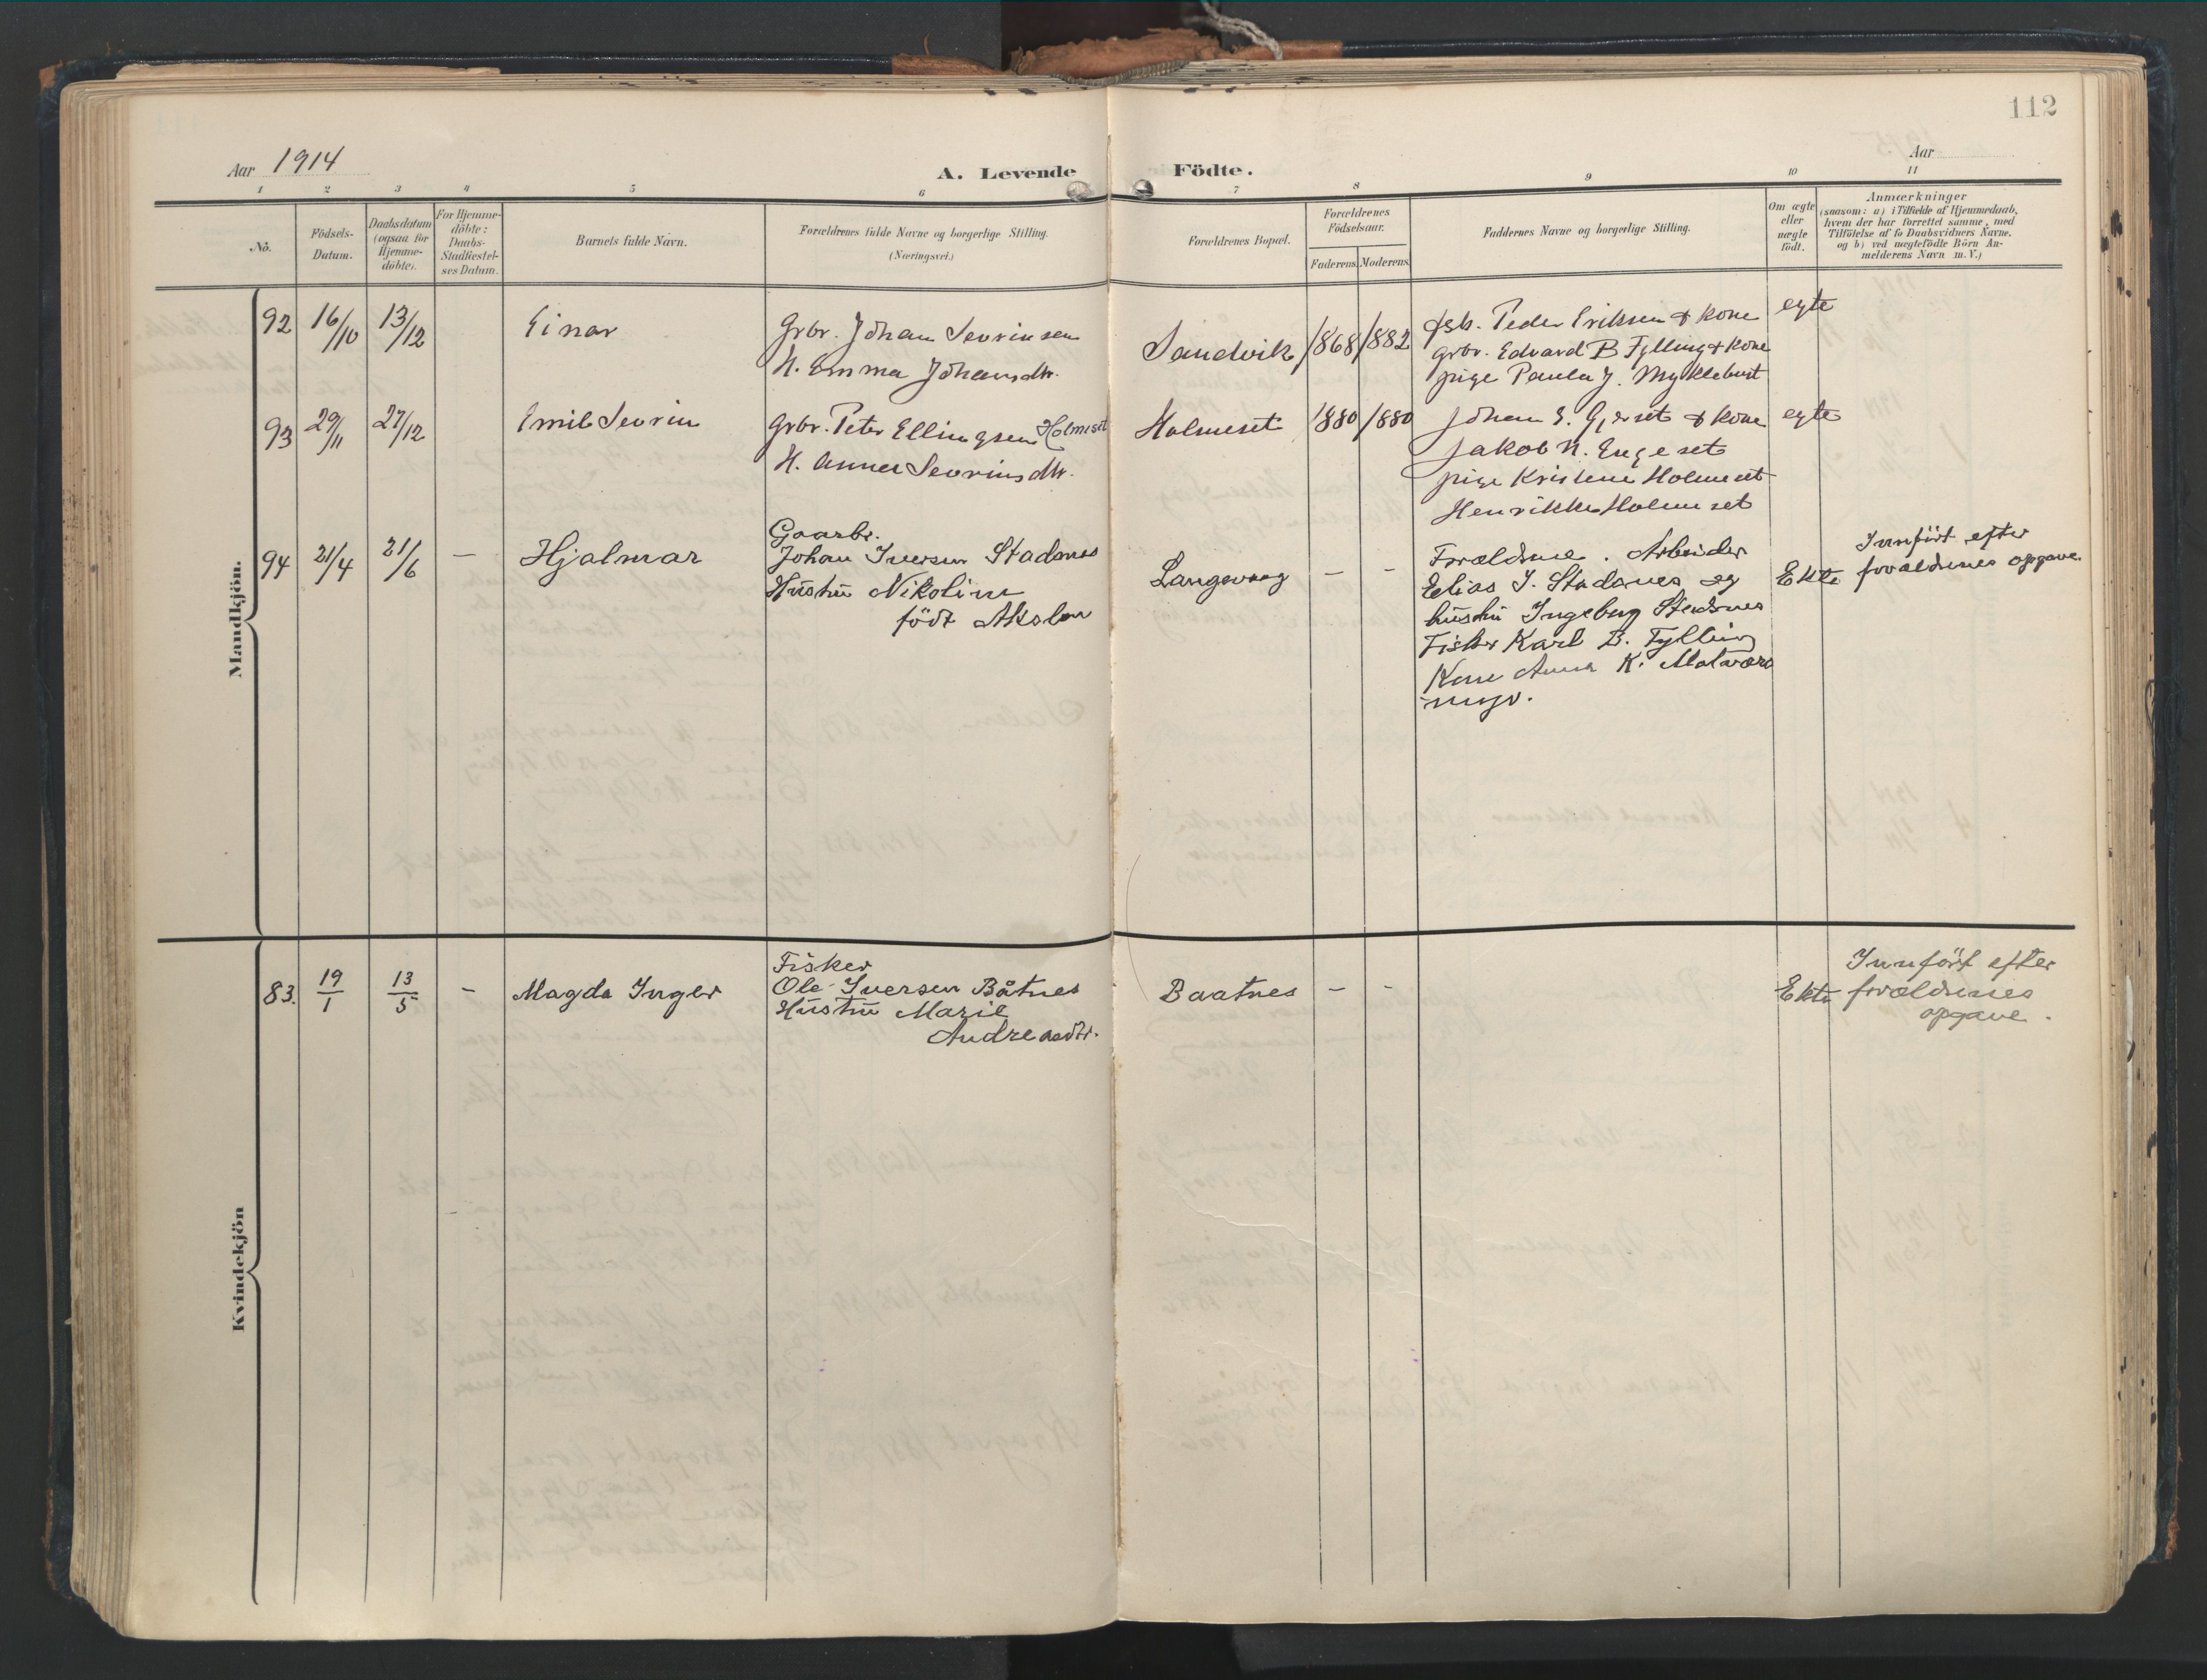 112
Aar 1914
A. Levende Födte.
Aar
1 2 3 4 5 6 7 8 9 10 11
No.
Födsels-
Datum.
Daabsdatum
(ogsaa for
Hjemme-
döbte).
For Hjemme-
döbte:
Daabs-
Stadfæstel-
ses Datum.
Barnets fulde Navn.
Forældrenes fulde Navne og borgerlige Stilling.
(Næringsvei.)
Forældrenes Bopæl.
Forældrenes
Födselsaar.
Faderens. Moderens.
Faddernes Navne og borgerlige Stilling.
Om ægte
eller
uægte
födt.
Anmærkninger
(saasom: a) i Tilfælde af Hjemmedaab,
hvem der har forrettet samme, med
Tilföielse af to Daabsvidners Navne,
og b) ved uægtefödte Börn An-
melderens Navn m. V.)
Mandkjön.
92 16/10 13/12 Einar
Grbr. Johan Sevrinsen
H. Emma Johansdtr.
Sandvik 1868 1882
fsb. Peder Eriksen & kone
grbr. Edvard B Fylling & kone
pige Paula J. Myklebust
egte
93 29/11 27/12 Emil Sevrin
Grbr. Peter Ellingsen Holmeset
H. Anna Sevrinsdtr.
Holmeset 1880 1880
Johan E. Gjerset & kone
Jakob N. Engeset
pige Kristene Holmeset
Henrikke Holmeset
egte
94 21/4 21/6 – Hjalmar
Gaarbr.
Johan Iversen Stadsnes
Hustru Nikoline
födt Akslen
Langevaag – –
Forældrene. Arbeider
Elias J. Stadsnes og
hustru Ingeborg Stadsnes
Fisker Karl B. Fylling
Kone Anna K.
Ekte
Innfört efter
forældrenes opgave.
Kvindekjön
83. 19/1 13/5 – Magda Inger
Fisker
Ole Iversen Båtnes
Hustru Marie
Andreasdtr.
Baatnes – –
Ekte
Innfört efter
forældrenes
opgave.